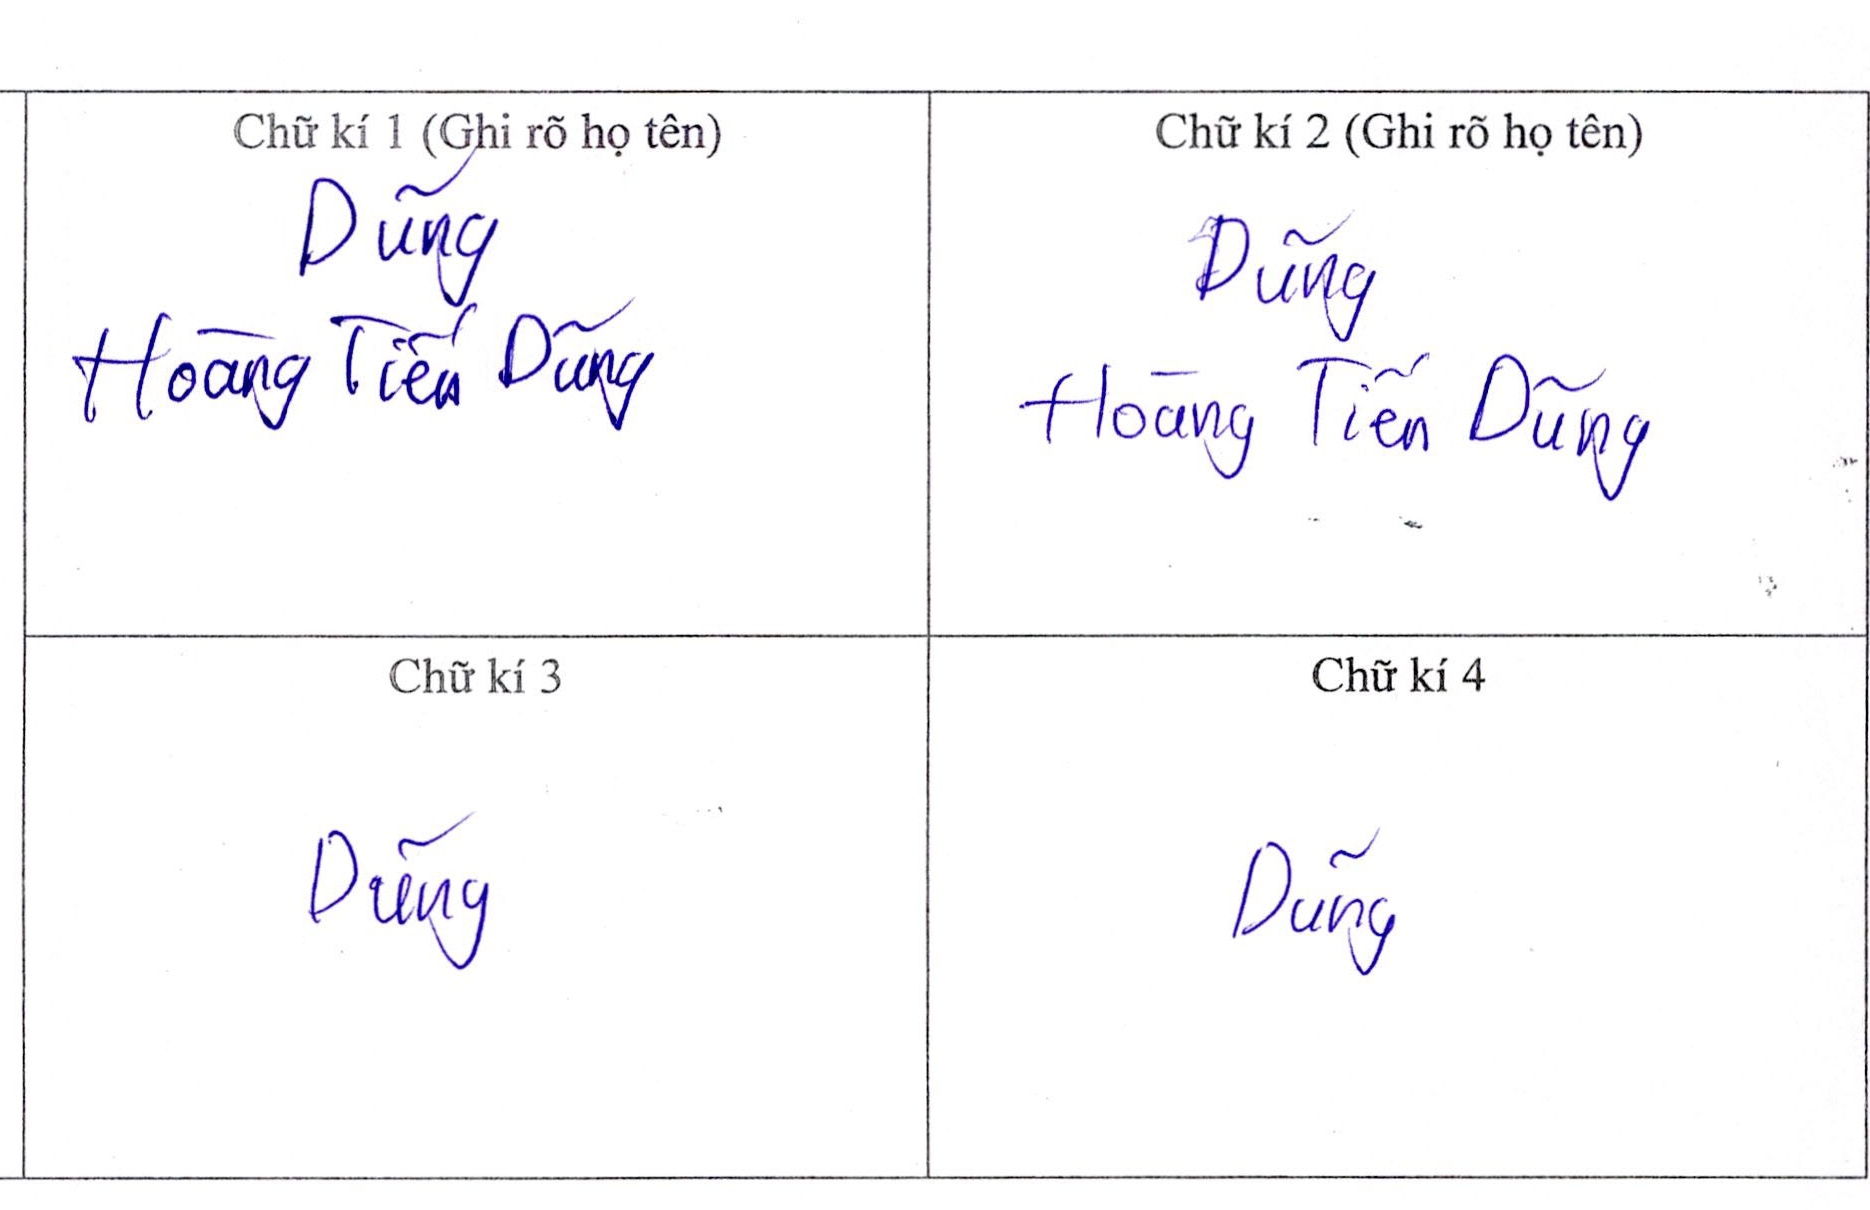 Chữ kí 1 (Ghi rõ họ tên)
Dũng
Hoàng Tiến Dũng
Chữ kí 2 (Ghi rõ họ tên)
Dũng
Hoàng Tiến Dũng
Chữ kí 3
Dũng
Chữ kí 4
Dũng